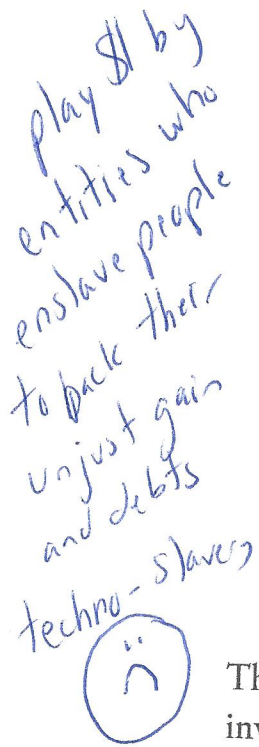 play $1 by
entities who
enslave people
to back their
unjust gain
and debts
techno-slavery
Th
inv